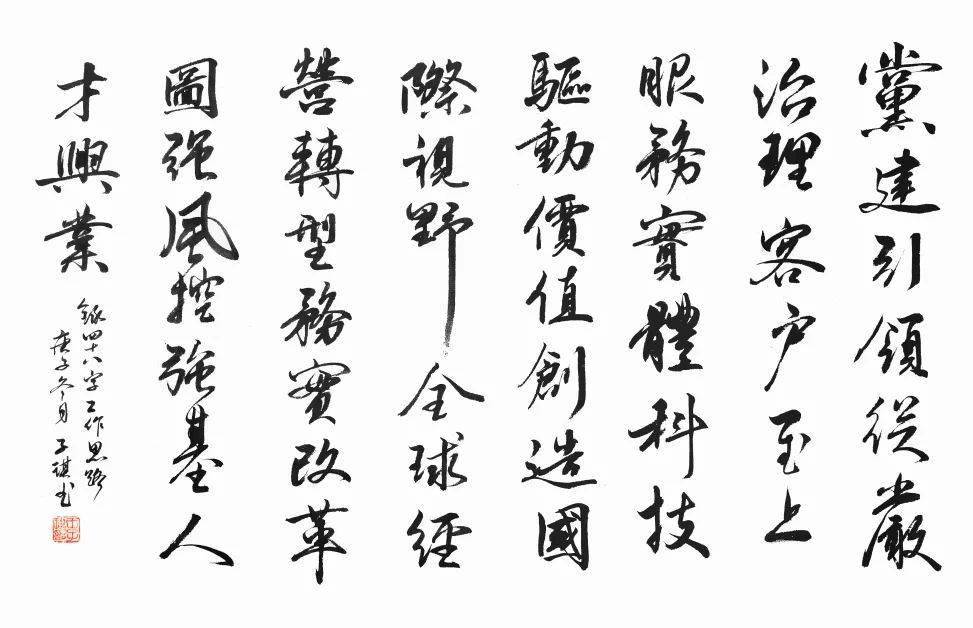 黨建引領從嚴
治理客户至上
眼務實體科技
驅動價值創造國
際視野全球經
營轉型務實改革
圖强風控強基人
才興業
錄四十八字工作思路
庚子冬月子琪书